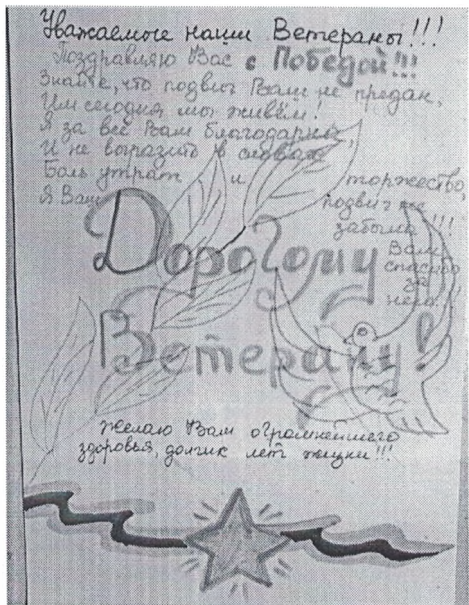 Уважаемые наши Ветераны!!!
Поздравляю Вас с Победой!!!
Знайте, что подвиг Ваш не предан,
Им сегодня мы живём!
Я за всё Вам благодарна,
И не выразить в словах
Боль утрат и торжество,
Я Ваш подвиг не
забыла!!!
Вам
спасибо
за
него!!!
Дорогому
Ветерану!
Желаю Вам огромнейшего
здоровья, долгих лет жизни!!!